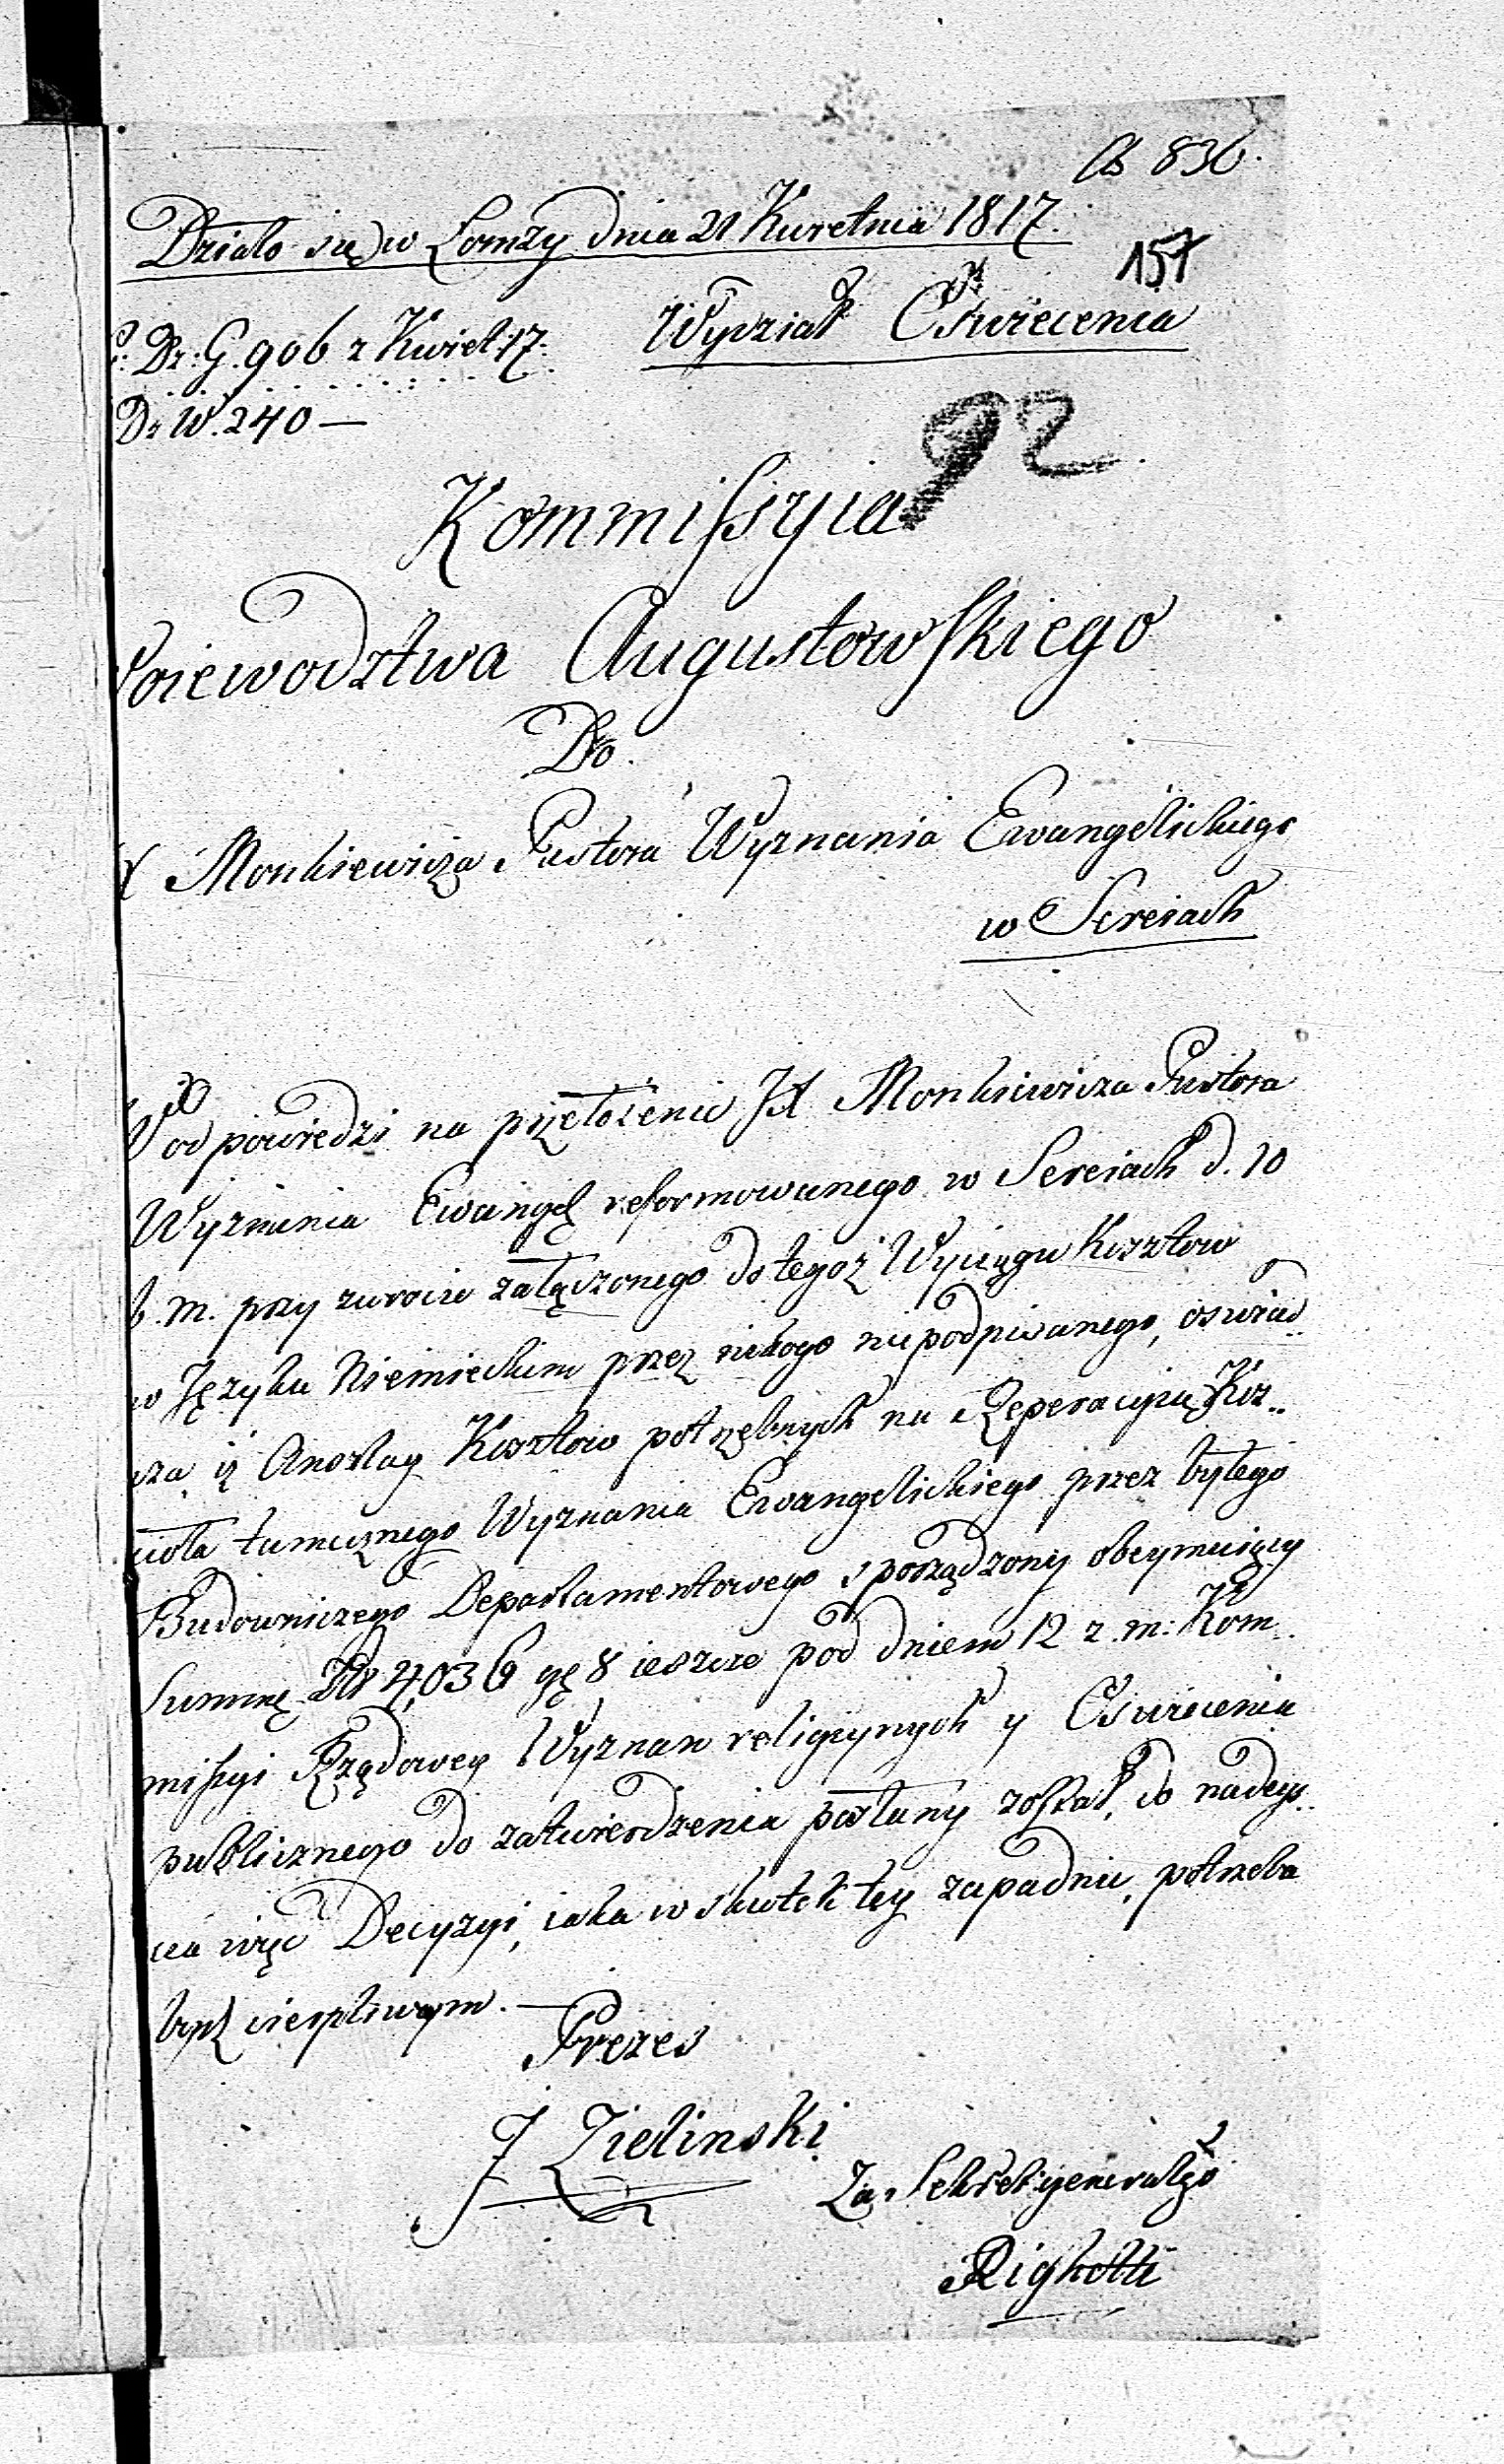 836.
Działo się w Łomży dnia 21 Kwietnia 1817.
157
Dz: G. 906 z Kwiet: 17.
Wydział Oświecenia
Dz W. 240 —
92
Kommissyia
Woiewodztwa Augustowskiego
Do
X Monkiewicza Pastora Wyznania Ewangelickiego
w Sereiach
W odpowiedzi na przełożenie JX Monkiewicza Pastora
Wyznania Ewangel reformowanego w Sereiach d. 10
b. m. przy zwrocie załączonego do tegoż Wyciągu Kosztow
w Języku Niemieckim przez nikogo niepodpisanego, oswiad..
cza iż Anszlag Kosztow potrzebnych na Reperacyią Koś..
cioła tamecznego Wyznania Ewangelickiego przez byłego
Budowniczego Departamentowego sporządzony obeymuiący
Summę Złł 4,036 gę 8 ieszcze pod dniem 12 z. m: Kom..
missyi Rządowey Wyznan religiynych y Oswiecenia
publicznego do zatwierdzenia posłany został, do nadeys..
cia więc Decyzyi, iaka w skutek tey zapadnie, potrzeba
bydź cierpliwym. —
Prezes
J Zielinski
Za Sekret: generalgo
Righetti